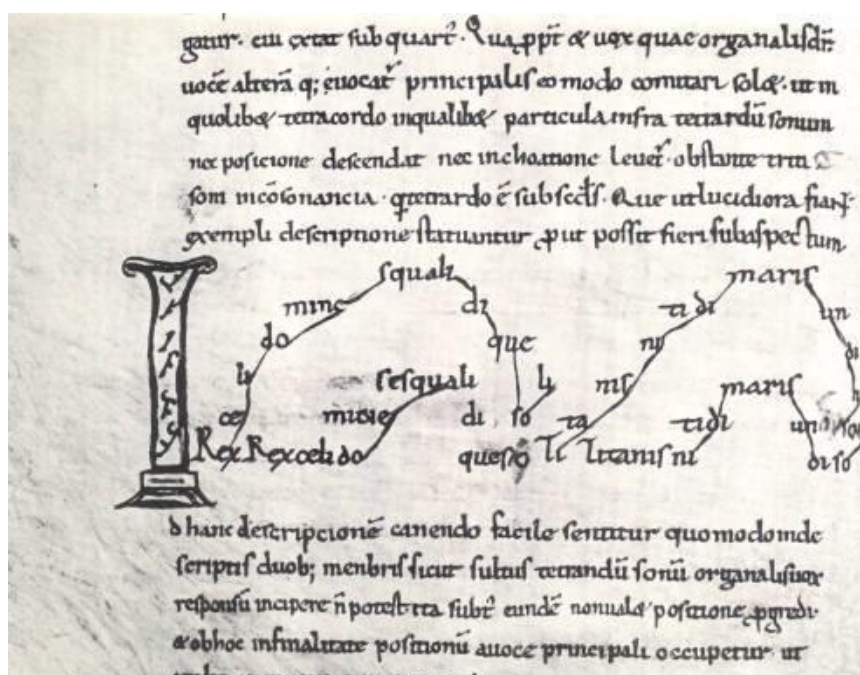 gatur. eiu extat subquart. Quappt & uox quae organalis dr
uoce altera q; euocat principalis eo modo comitari sol&. ut in
quolib& tetracordo inqualib& particula infra tetrardu sonum
nec posicione descendat nec inchoatione leuet. obstante triti
soni incosonancia. q tetrardo e subscds. Que utlucidiora fiant
exempli descriptione statuantur put possit fieri subaspectum
squali maris
minc di ti di un
do que ni di
li sesqualı li nis maris
ce micie di so ta ti di un so
Rex Rex celi do queso Ti Titanis ni di so
d hanc descripcione canendo facile sentitur quomodo inde
scriptis duob; menbris sicut subtus tetrandu sonu organalis uox
responsu incipere n potest ita subt eunde non ual& positione pgredi.
& obhoc infinalitate positionu auoce principali occupetur. ut